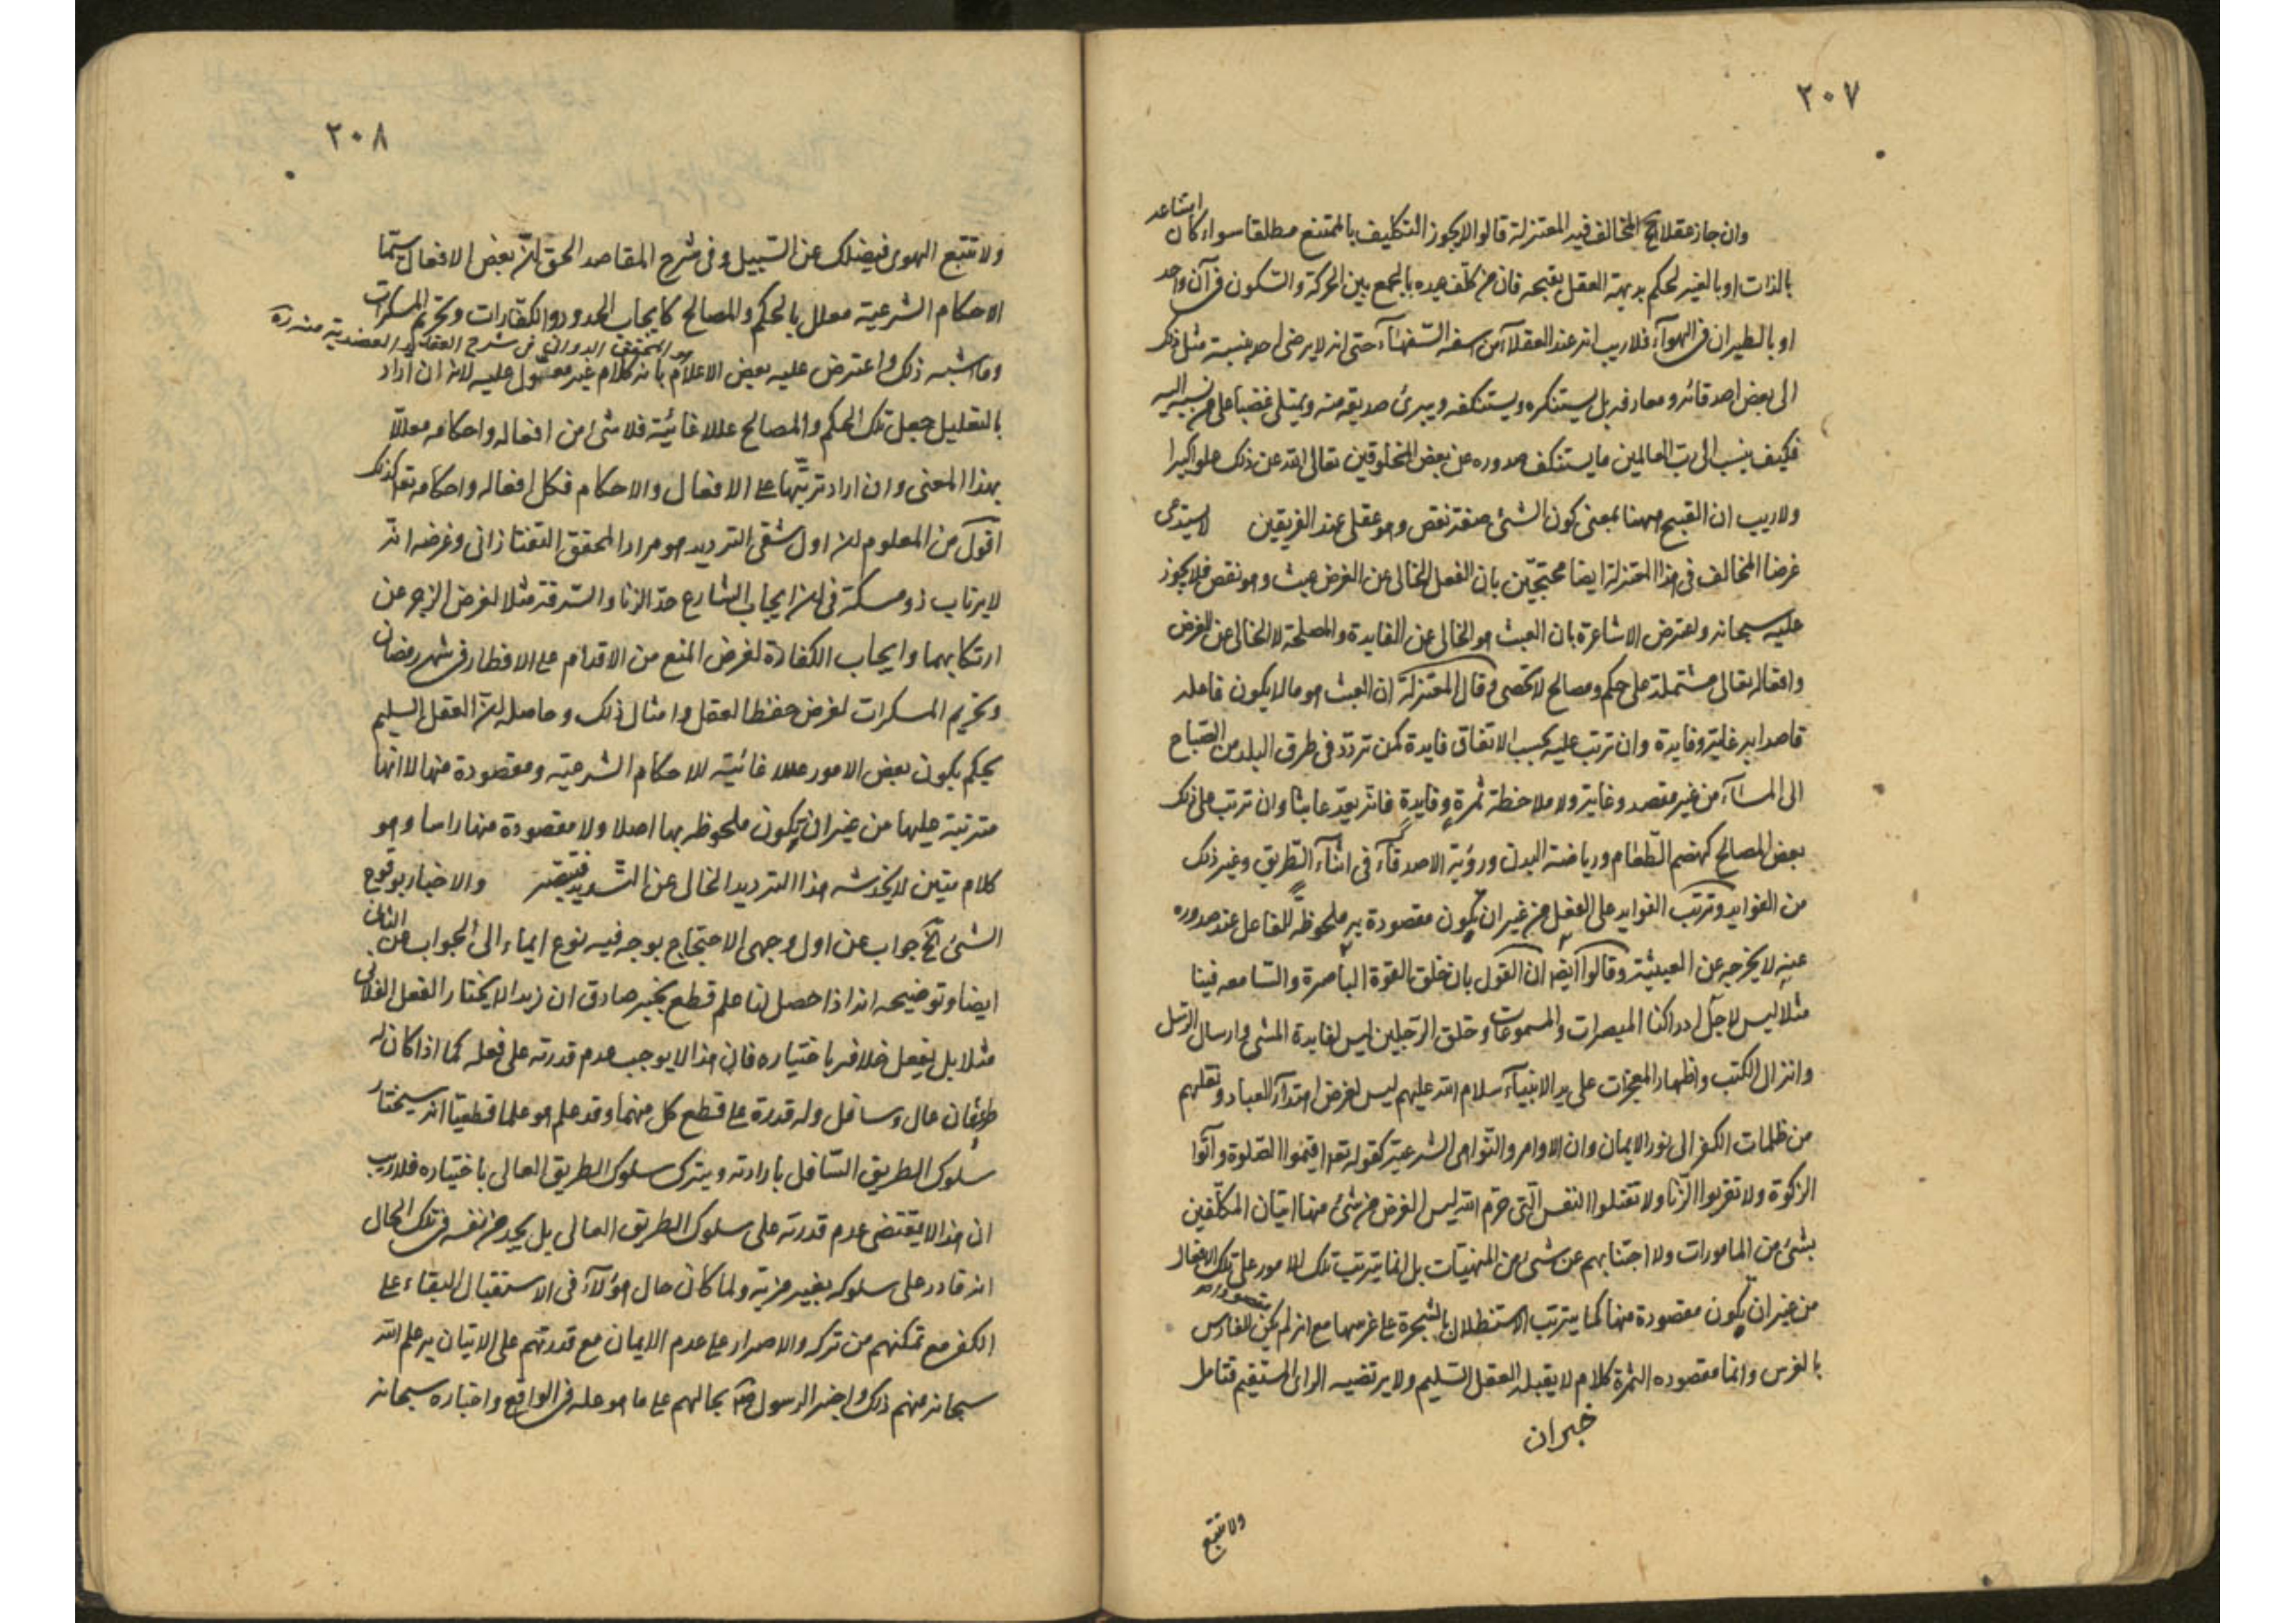 ٢٠٧
وان جاز عقلا الخ المخالف فيه المعتزلة قالوا لا يجوز التكليف بالممتنع مطلقا سواء كان امتناعه
بالذات او بالغير لحكم بديهة العقل بقبحه فان من كلف عبده بالجمع بين الحركة والسكون فى آن واحد
او بالطيران فى الهوآء فلا ريب انه عند العقلآء من اسفه السفهآء حتى انه لا يرضى احد بنسبة مثل ذلك
الى بعض اصدقائه ومعارفه بل يستنكره ويستنكفه ويبرئ صديقه منه ويمتلى غضبا على من نسبه اليه
فكيف ينسب الى رب العالمين ما يستنكف صدوره عن بعض المخلوقين تعالى الله عن ذلك علوا كبيرا
ولا ريب ان القبح ههنا بمعنى كون الشئ صفة نقص وهو عقلى عند الفريقين لا يستدعى
غرضا المخالف فى هذا المعتزلة ايضا محتجّين بان الفعل الخالى عن الغرض عبث وهو نقص فلا يجوز
عليه سبحانه واعترض الاشاعرة بان العبث هو الخالى عن الفايدة والمصلحة لا الخالى عن الغرض
وافعاله تعالى مشتملة على حكم ومصالح لا تحصى وقال المعتزلة ان العبث هو ما لا يكون فاعله
قاصدا به غاية وفايدة وان ترتب عليه بحسب الاتفاق فايدة كمن تردّد فى طرق البلد من الصباح
الى المسآء من غير مقصد وغاية ولا ملاحظة ثمرة وفايدة فانه يعدّ عابثا وان ترتب على ذلك
بعض المصالح كهضم الطعام ورياضة البدن ورؤية الاصدقآء فى اثنآء الطريق وغير ذلك
من الفوايد وترتب الفوايد على الفعل من غير ان يكون مقصودة به ملحوظة للفاعل عند صدوره
عنه لا يخرجه عن العبثية وقالوا ايضا ان القول بان خلق القوة الباصرة والسامعه فينا
مثلا ليس لاجل ادراكنا المبصرات والمسموعات وخلق الرجلين ليس لفايدة المشى وارسال الرسل
وانزال الكتب واظهار المعجزات على يد الانبيآء سلام الله عليهم ليس لغرض اهتدآء العباد ونقلهم
من ظلمات الكفر الى نور الايمان وان الاوامر والنواهى الشرعية كقوله تعا اقيموا الصلوة وآتوا
الزكوة ولا تقربوا الزنا ولا تقتلوا النفس التى حرّم الله ليس الغرض من شئ منها اتيان المكلفين
بشئ من المامورات ولا اجتنابهم عن شئ من المنهيات بل انما يترتب تلك الامور على تلك الافعال
من غير ان يكون مقصودة منها كما يترتب الاستظلال بالشجرة على غرسها مع انه لم يكن للغارس مقصوده
بالغرس وانما مقصوده الثمرة كلام لا يقبله العقل السليم ولا يرتضيه الراى المستقيم فتامل
خبران
ولا تتبع
٢٠٨
ولا تتبع الهوى فيضلك عن السبيل وفى شرح المقاصد الحق ان بعض الافعال سيّما
الاحكام الشرعية معلل بالحكم والمصالح كايجاب الحدود والكفارات وتحريم المسكرات
هو المحقق الدوانى فى شرح العقايد العضدية منه ره
وما شبه ذلك واعترض عليه بعض الاعلام بانه كلام غير معقول عليه لانه ان اراد
بالتعليل جعل تلك الحكم والمصالح عللا غائية فلا شئ من افعاله واحكامه معللا
بهذا المعنى وان اراد ترتبها على الافعال والاحكام فكل افعاله واحكامه تعا كذلك
اقول من المعلوم ان اول شقى الترديد هو مراد المحقق التفتازانى وغرضه انه
لا يرتاب ذو مسكة فى ان ايجاب الشارع حدّ الزنا والسرقة مثلا لغرض الزجر عن
ارتكابهما وايجاب الكفارة لغرض المنع من الاقدام على الافطار فى شهر رمضان
وتحريم المسكرات لغرض حفظ العقل وامثال ذلك وحاصله ان العقل السليم
يحكم بكون بعض الامور عللا غائية للاحكام الشرعية ومقصودة منها لا انها
مترتبة عليها من غير ان يكون ملحوظه بها اصلا ولا مقصودة منها راسا وهو
كلام متين لا يخدشه هذا الترديد الخالى عن التسديد فتبصر والاخبار بوقوع
الشئ الخ جواب عن اول وجهى الاحتجاج بوجه فيه نوع ايماء الى الجواب عن الثانى
ايضا وتوضيحه انه اذا حصل لنا علم قطعى بخبر صادق ان زيدا لا يختار الفعل الفلانى
مثلا بل يفعل خلافه باختياره فان هذا لا يوجب عدم قدرته على فعله كما اذا كان له
طريقان عال وسافل وله قدرة على قطع كل منهما وقد علم هو علما قطعيا انه سيختار
سلوك الطريق السافل بارادته ويترك سلوك الطريق العالى باختياره فلا ريب
ان هذا لا يقتضى عدم قدرته على سلوك الطريق العالى بل يجد من نفسه فى تلك الحال
انه قادر على سلوكه بغير مزية ولما كان حال هؤلآء فى الاستقبال البقاء على
الكفر مع تمكنهم من تركه والاصرار على عدم الايمان مع قدرتهم على الاتيان به علم الله
سبحانه منهم ذلك واخبر الرسول بحالهم على ما هو عليه فى الواقع واخباره سبحانه